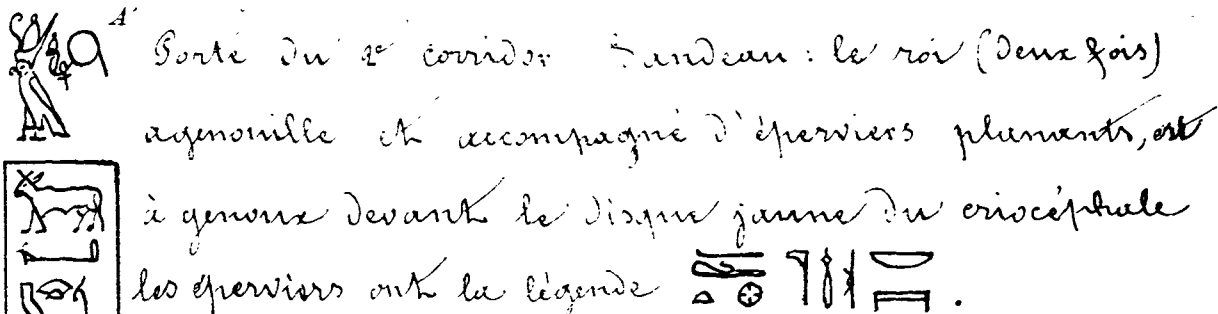 A'
Porte du 2e corridor Bandeau : le roi (deux fois)
agenouillé et accompagné d'éperviers planants, est
à genoux devant le disque jaune du criocéphale
les éperviers ont la légende